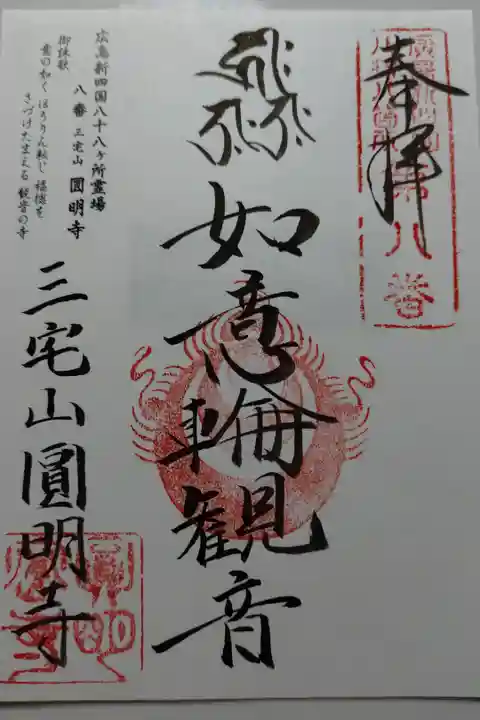 奉拝
第八番
如意輪観音
広島新四国八十八ヶ所霊場
八番 三宅山 圓明寺
御詠歌
意の如く ほうりん転じ 福徳を
さづけたまえる 観音の寺
三宅山圓明寺